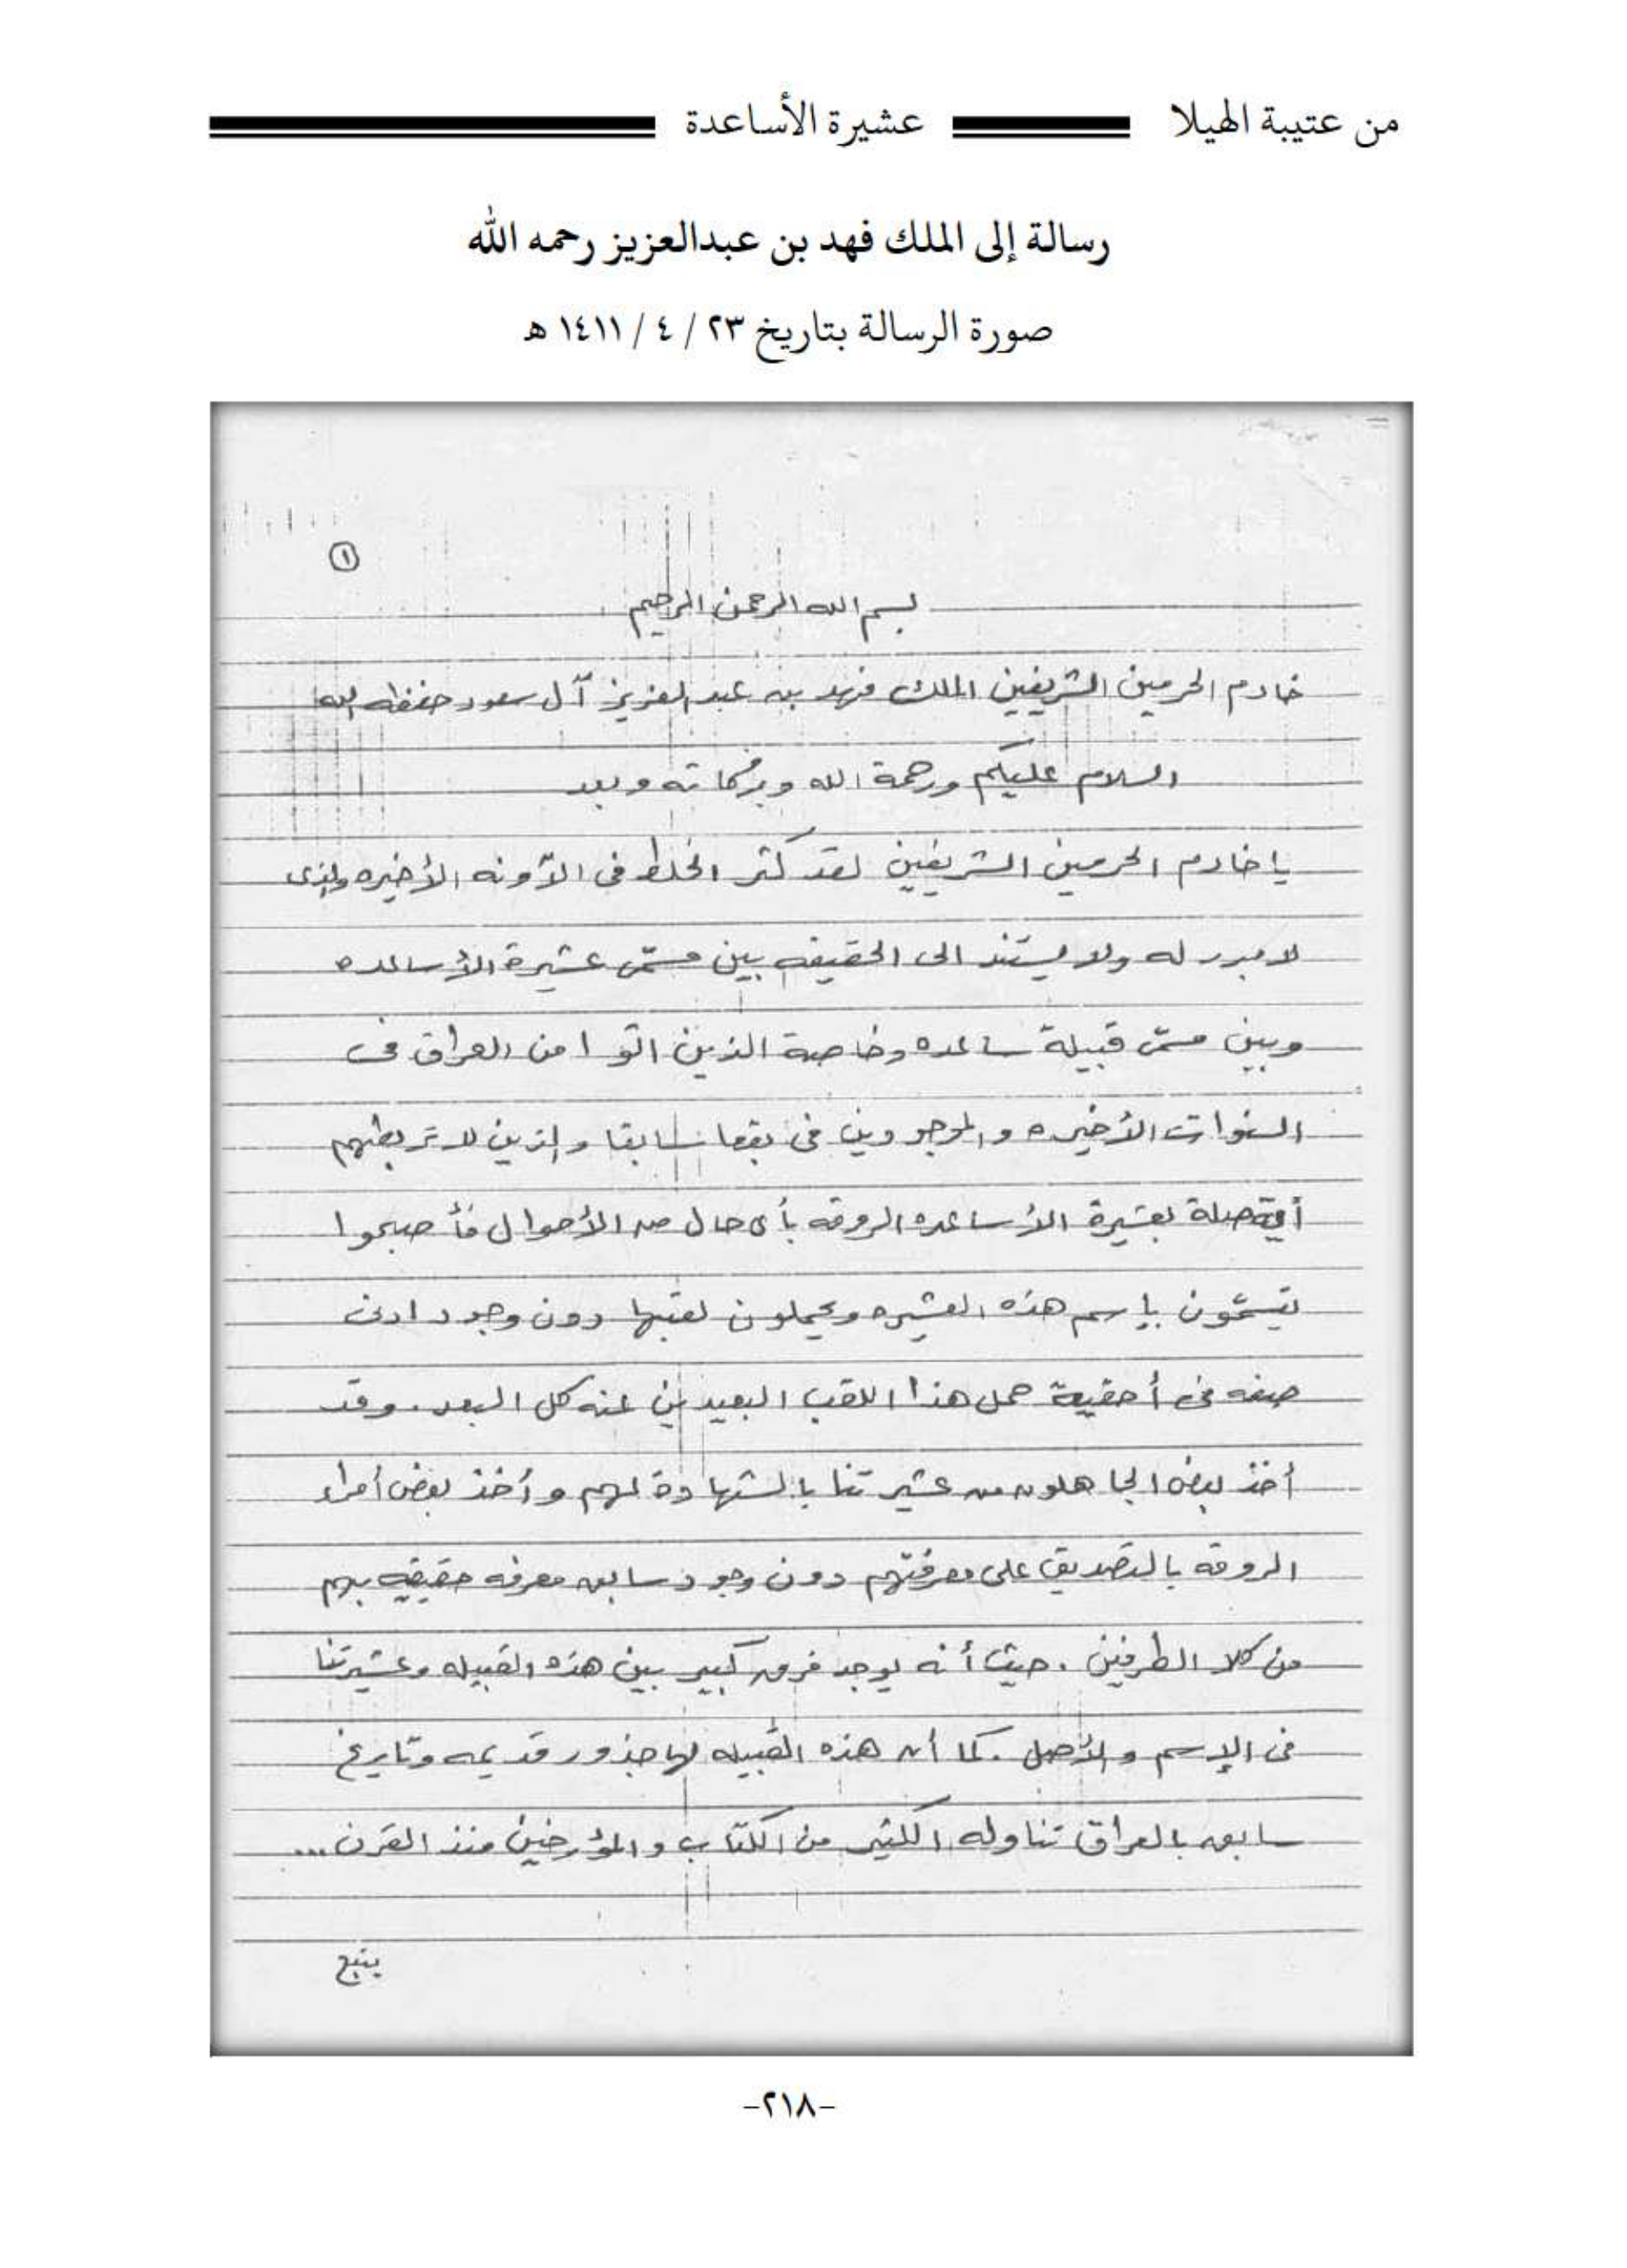 من عتيبة الهيلا عشيرة الأساعدة
رسالة إلى الملك فهد بن عبدالعزيز رحمه الله
صورة الرسالة بتاريخ ٢٣ / ٤ / ١٤١١ هـ
١
بسم الله الرحمن الرحيم
خادم الحرمين الشريفين الملك فهد بن عبد العزيز آل سعود حفظه الله
السلام عليكم ورحمة الله وبركاته وبعد
يا خادم الحرمين الشريفين لقد كثر الخلط في الآونه الأخيره والذى
لا مبرر له ولا يستند الى الحقيقه بين مسمّى عشيرة الأساعده
وبين مسمّى قبيلة ساعده وخاصة الذين اتوا من العراق في
السنوات الأخيره والموجودين في بقعا سابقا والذين لا تربطهم
أية صلة بعشيرة الأساعده الروقه بأى حال من الأحوال فأصبحوا
يتسمّون بإسم هذه العشيره ويحملون لقبها دون وجود ادنى
صفه في أحقية حمل هذا اللقب البعيدين عنه كل البعد. وقد
أخذ بعض الجاهلون من عشيرتنا بالشهادة لهم وأخذ بعض أمراء
الروقه بالتصديق على معرفتهم دون وجود سابق معرفه حقيقيه بهم
من كلا الطرفين. حيث أنه يوجد فرق كبير بين هذه القبيله وعشيرتنا
في الإسم والأصل. كما أن هذه القبيله لها جذور قديمه وتاريخ
سابق بالعراق تناوله الكثير من الكتاب والمؤرخين منذ القرن ...
يتبع
-٢١٨-